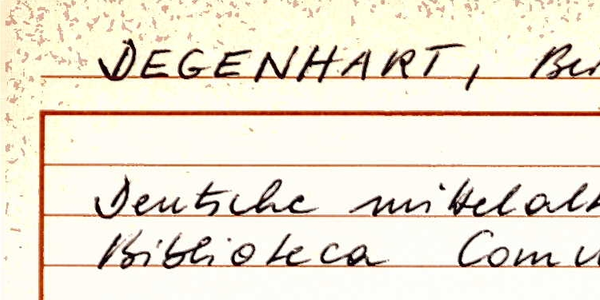 DEGENHART, Be
Deutsche mittelalt
Biblioteca Comu